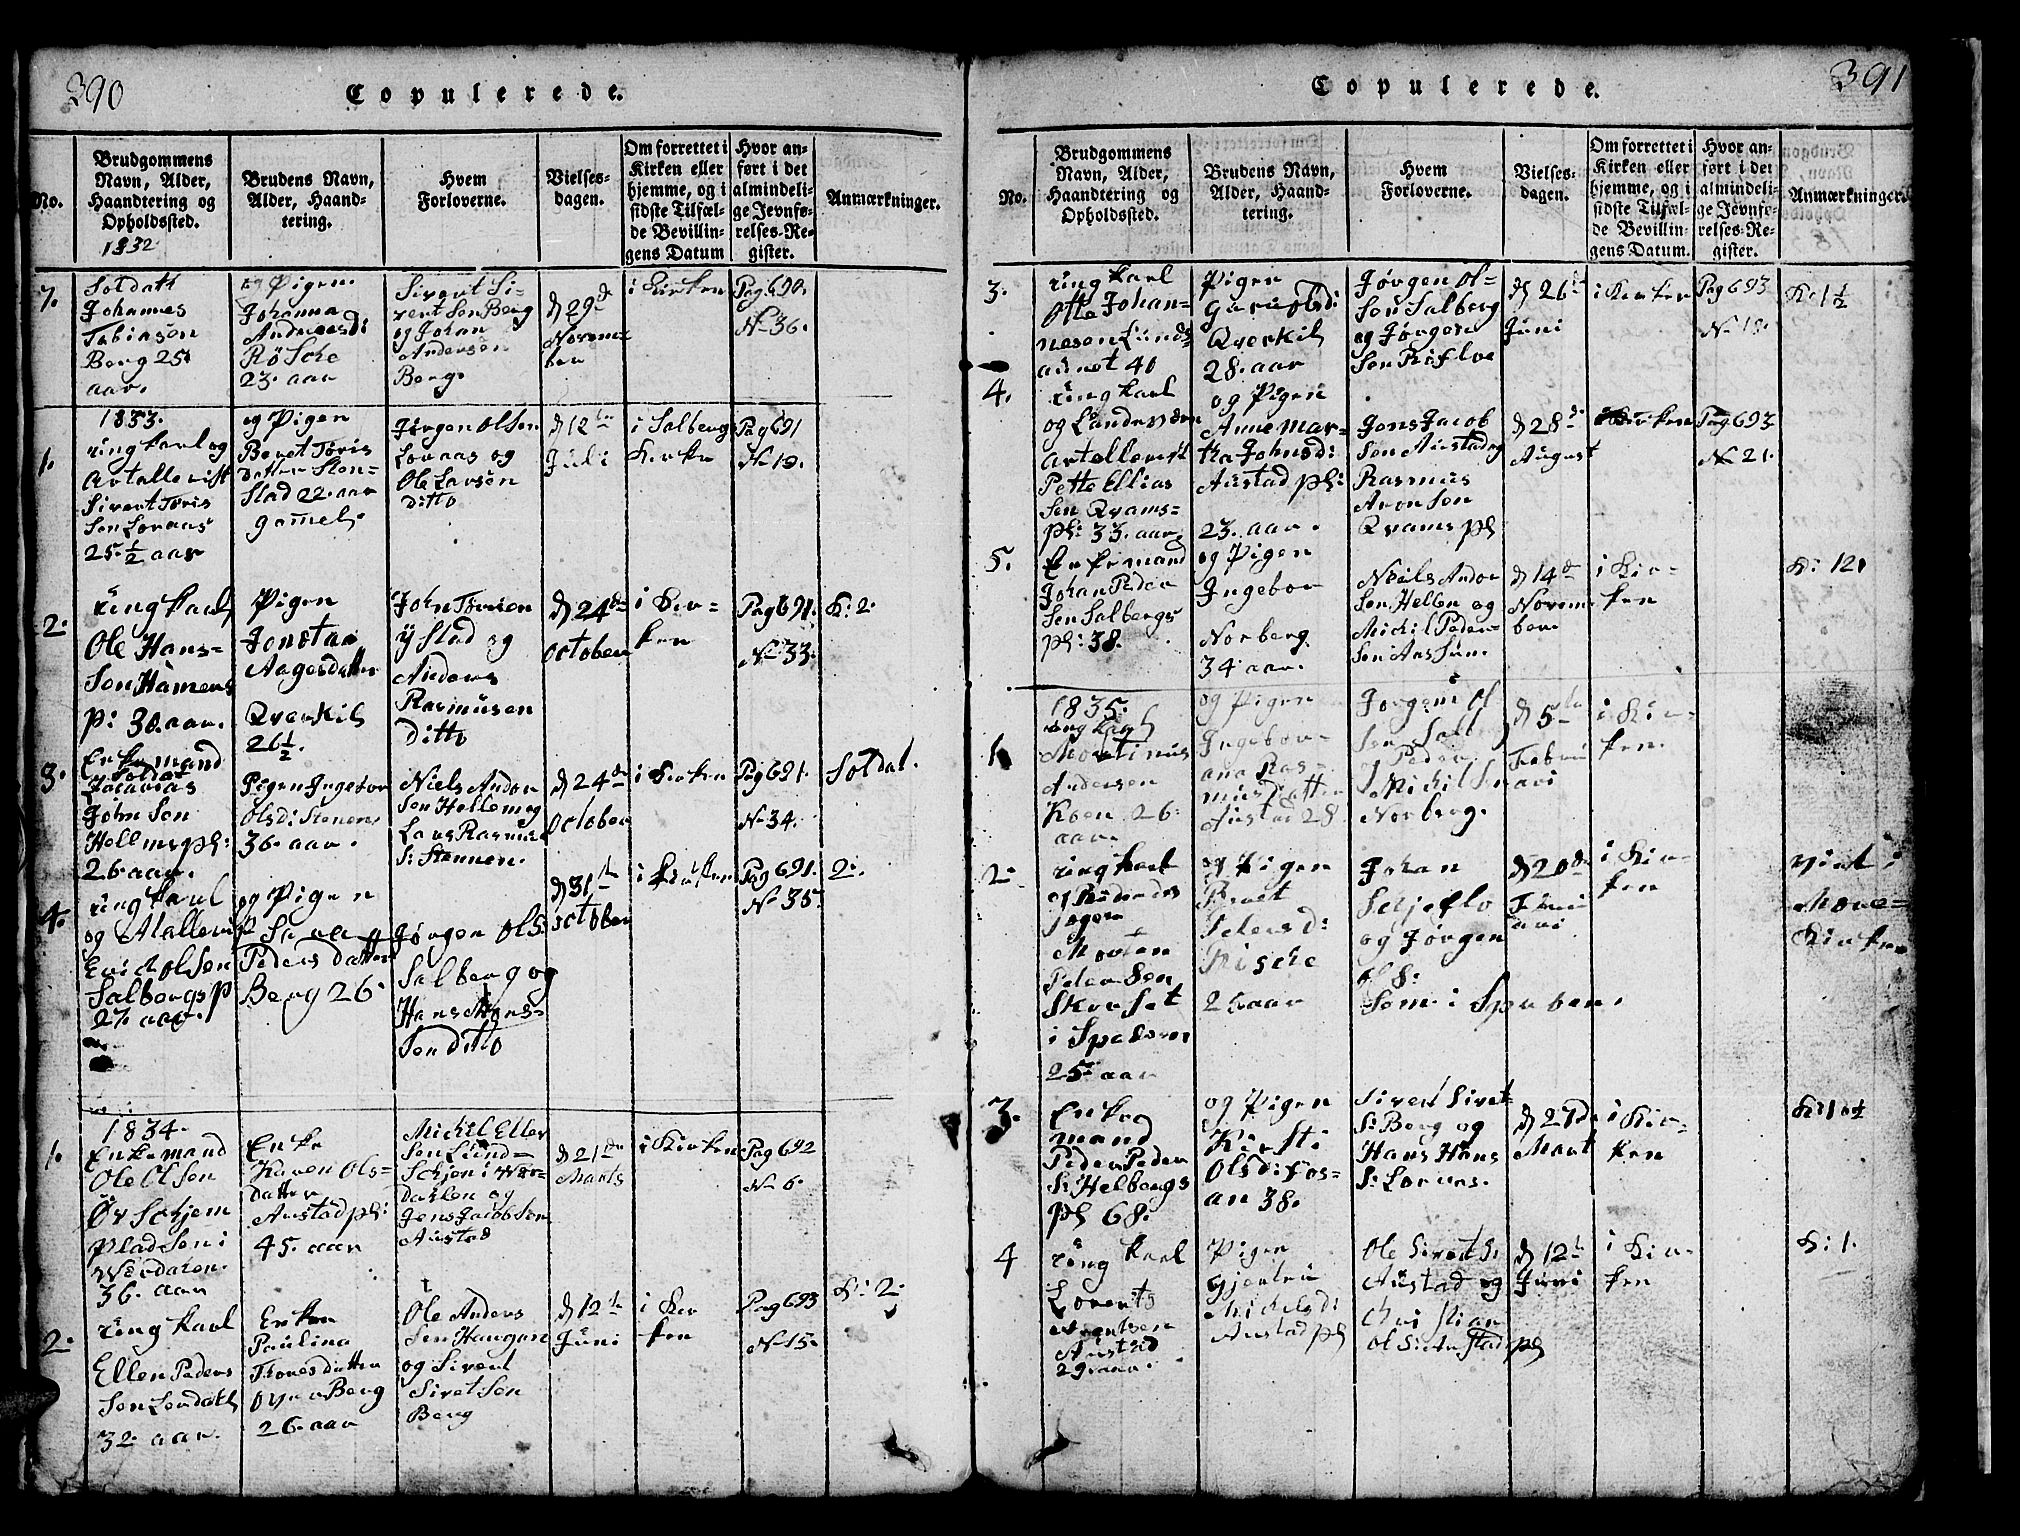 390
Copulerede.
No.
Brudgommens
Navn, Alder,
Haandtering og
Opholdssted.
1832
Brudens Navn,
Alder, Haand-
tering.
Hvem
Forloverne.
Vielses-
dagen.
Om forrettet i
Kirken eller
hjemme, og i
sidste Tilfæl-
de Bevillin-
gens Datum
Hvor an-
ført i det
almindeli-
ge Jevnfø-
relses-Re-
gister.
Anmærkninger.
7.
Soldatt
Johannes
Tobiasen
Berg 25
aar.
og Pigen
Johanna
Andreasdr
Røske
23. aar
Sivert Si-
vert Sen Berg
og Johan
Andersen
Berg.
d 29d
Novem-
ber
i Kirken
Pag 690.
No 36.
1833.
1.
ungkarl og
Sivert Tøris
Sen Loraas
25 1/2 aar
og Pigen
Beret Tøris
datter Sten-
Stad 22. aar
gamel.
Jørgen Olsen
Loraas og
Ole Larsen
ditto
d 12te
Juli
i Salbergs
Kirke
Pag 691
No 19.
2.
ungkarl
Ole Hans-
Sen Hamens
P: 30. aar.
Pigen
Aagesdatter
Qverkil
26 1/2.
John
ystad og
Anders
Rasmusen
Ditto
d 24de
October
i Kir-
ken
Pag 691.
No 33.
K: 2:
3.
Enkemand
Soldat
Zacarias
John Sen
Hellemspl:
26. aar.
Pigen Ingebor
Olsdr Stenen
36. aar.
Niels Andor
Sen Hellem og
Lars Rasmus
S: Stennen.
d 24de
October
i Kirken
Pag 691.
No 34.
Soldat.
4.
ungkarl
og
Erich Olsen
Salbergs P
27. aar.
og Pigen
Sara
Peders datter
Berg 26.
Jørgen Ols:
Salberg og
Hans Hans-
Sen ditto
d 31te
October
i Kirken
Pag 691.
No 35.
2.
1834.
1.
Enkemand
Ole Olsen
Ør Schjem
Plads Sen i
Werdalen.
36. aar
Enke
Karen Ols-
datter
Austad pl:
45. aar
Michil Eller
Sen Lund-
Schjen i Wer-
dahlen og
Jens Jacob Sen
Austad
d 21de
Marts
i Kirken
Pag 692
No 6.
2.
ungkarl
Ellen Peders
Sen
32 aar.
Enken
Paulina
Thomesdatter
Øver Berg
26. aar
Ole Anders
Sen Haugan
og Sivert
Sivet Sen
Berg
d 12te
Juni
i Kir
ken
Pag 693
No 15.
K: 2.
391
Copulerede.
No.
Brudgommens
Navn, Alder,
Haandtering og
Opholdssted.
Brudens Navn,
Alder, Haand-
tering.
Hvem
Forloverne.
Vielses-
dagen.
Om forrettet i
Kirken eller
hjemme, og i
sidste Tilfæl-
de Bevillin-
gens Datum.
Hvor an-
ført i det
almindeli-
ge Jevnfø-
relses-Re-
gister.
Anmærkninger.
3.
ungkarl
Otte Johan-
nesen Lunds
aunet 40
Pigen
Guri Olsd:
Qverkil
28. aar
Jørgen Ol-
Sen Salberg
og Jørgen
Sen
d 26te
Juni
i Kirken
Pag 693
No 18.
K: 1 1/2
4.
ungkarl
og Landeværn
Artellerist
Petter Ellias
Sen Qvams-
pl: 33. aar.
og Pigen
Anne Mar-
tha Johnsd:
Austad pl:
23. aar.
Jens Jacob
Sen Austad og
Rasmus
Aron Sen
Qvams pl
d 28de
August
i Kirken
Pag 693.
No 21.
5.
Enkemand
Johan Peder
Sen Salbergs
pl: 38.
og Pigen
Ingebor
Norberg
34 aar.
Niels Andor
Sen Hellem og
Michil Peder-
Sen Aassun.
d 14de
Novem-
ber
i Kir-
ken
K: 12
1835.
1.
ungkarl
Mortinus
Andersen
Koen 26:
aar.
og Pigen
Ingebor-
ana Ras-
mus datter
Austad 28.
Jørgen Ol
Sen Salb
og Peder
Michil Sen
Norberg.
d 5te
Februari
i Kir-
ken.
2.
ungkarl
Jæger
Morten
Peder Sen
Skorset
i Sparboen
25 aar
og Pigen
Beret
Petersd:
Røske
2 aar
Johan
Schjeflo
og Jørgen
Ol S:
Sem i Sparboen.
d 20de
i Kir-
ken
viet i
Mære-
Kirken
3.
Enke
mand
Peder Peder
S: Helbergs
pl 68.
og Pigen
Kirsti
Olsd: Fos-
an 38.
Sivert Sivet-
S: Berg og
Hans Hans
S: Lornes.
d 27de
Mart
i Kir-
ken
4
ungkarl
Lorents
Arentsen
Austad
29 aar.
Pigen
Gjertru
Michelsd:
Austad pl
Ole Sivert S:
Austad og
Christian
Ol S: Austad pl
d 12te
Juni
i Kir-
ken
K: 1.